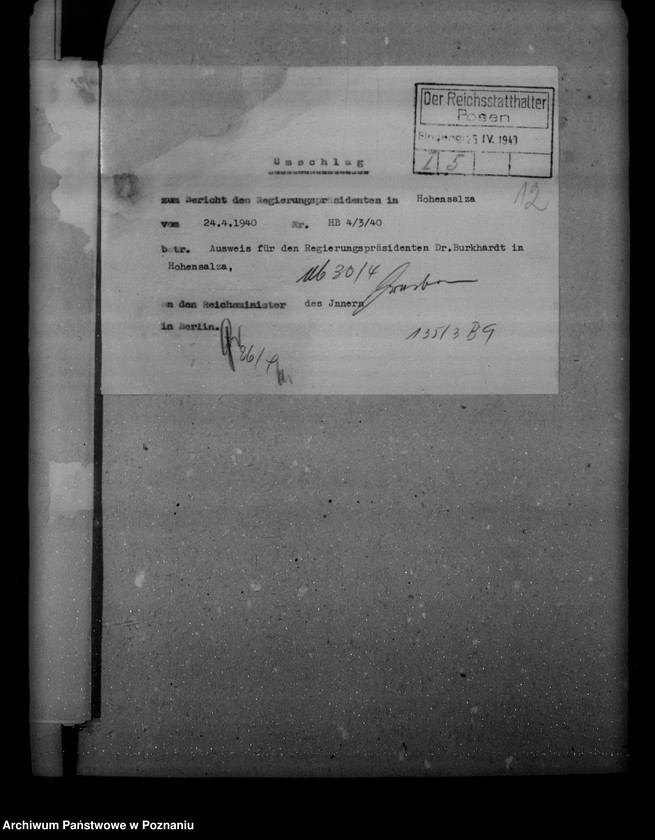 Der Reichsstatthalter
Posen
Eingang: 25 IV. 1940
I 5
Umschlag
zum Bericht des Regierungspräsidenten in Hohensalza
12
vom 24.4.1940 Nr. HB 4/3/40
betr. Ausweis für den Regierungspräsidenten Dr.Burkhardt in
Hohensalza,
30/4
an den Reichsminister des Jnnern
in Berlin.
26/4
135/3 B9
Archiwum Państwowe w Poznaniu